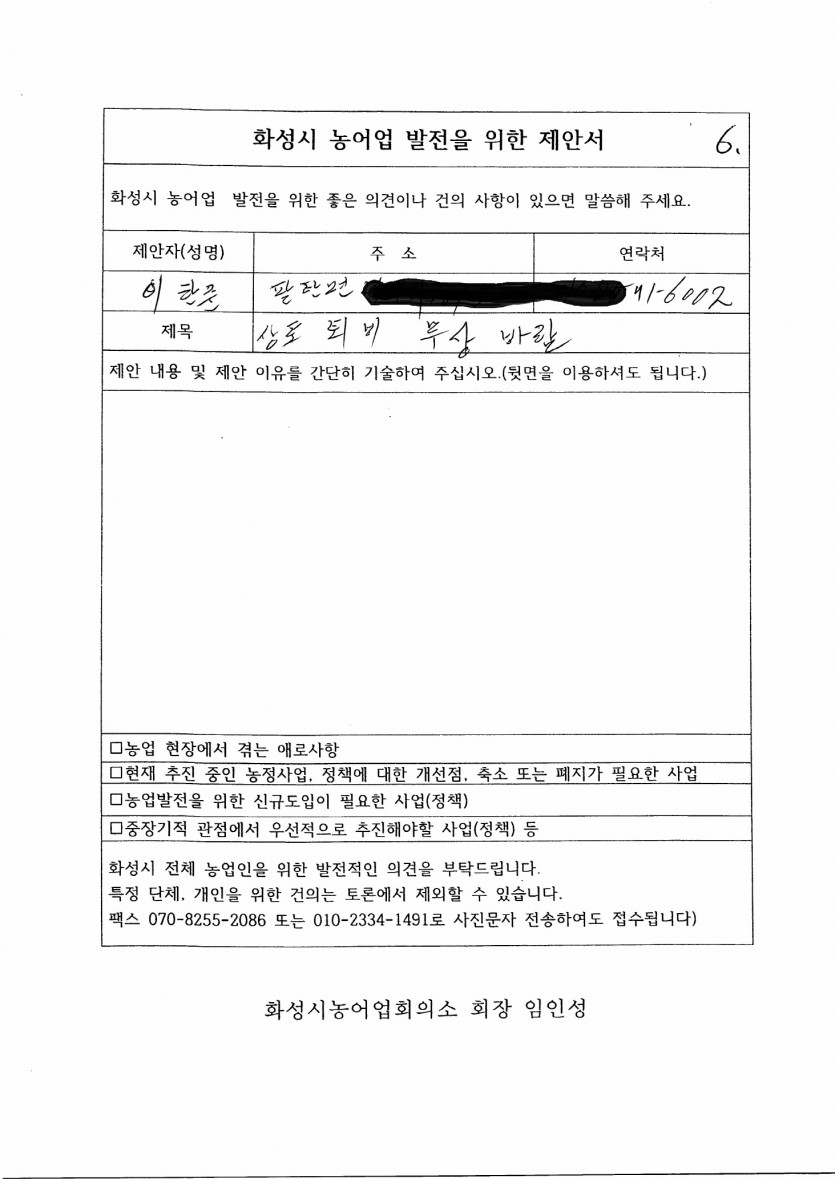 화성시 농어업 발전을 위한 제안서 6.
화성시 농어업 발전을 위한 좋은 의견이나 건의 사항이 있으면 말씀해 주세요.
제안자(성명) 주 소 연락처
이 한 팔탄면 41-6002
제목 상토 퇴비 무상 바람
제안 내용 및 제안 이유를 간단히 기술하여 주십시오.(뒷면을 이용하셔도 됩니다.)
□농업 현장에서 겪는 애로사항
□현재 추진 중인 농정사업, 정책에 대한 개선점, 축소 또는 폐지가 필요한 사업
□농업발전을 위한 신규도입이 필요한 사업(정책)
□중장기적 관점에서 우선적으로 추진해야할 사업(정책) 등
화성시 전체 농업인을 위한 발전적인 의견을 부탁드립니다.
특정 단체, 개인을 위한 건의는 토론에서 제외할 수 있습니다.
팩스 070-8255-2086 또는 010-2334-1491로 사진문자 전송하여도 접수됩니다)
화성시농어업회의소 회장 임인성